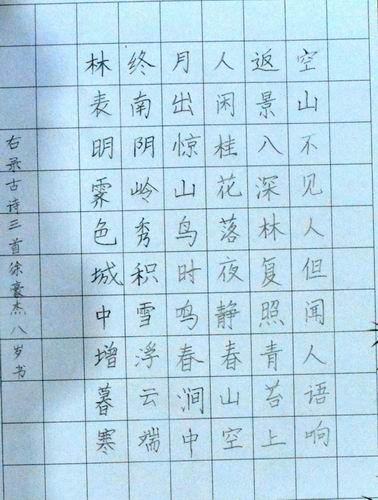 空山不见人但闻人语响
返景八深林复照青苔上
人闲桂花落夜静春山空
月出惊山鸟时鸣春涧中
终南阴岭秀积雪浮云端
林表明霁色城中增暮寒
右录古诗三首徐豪杰八岁书